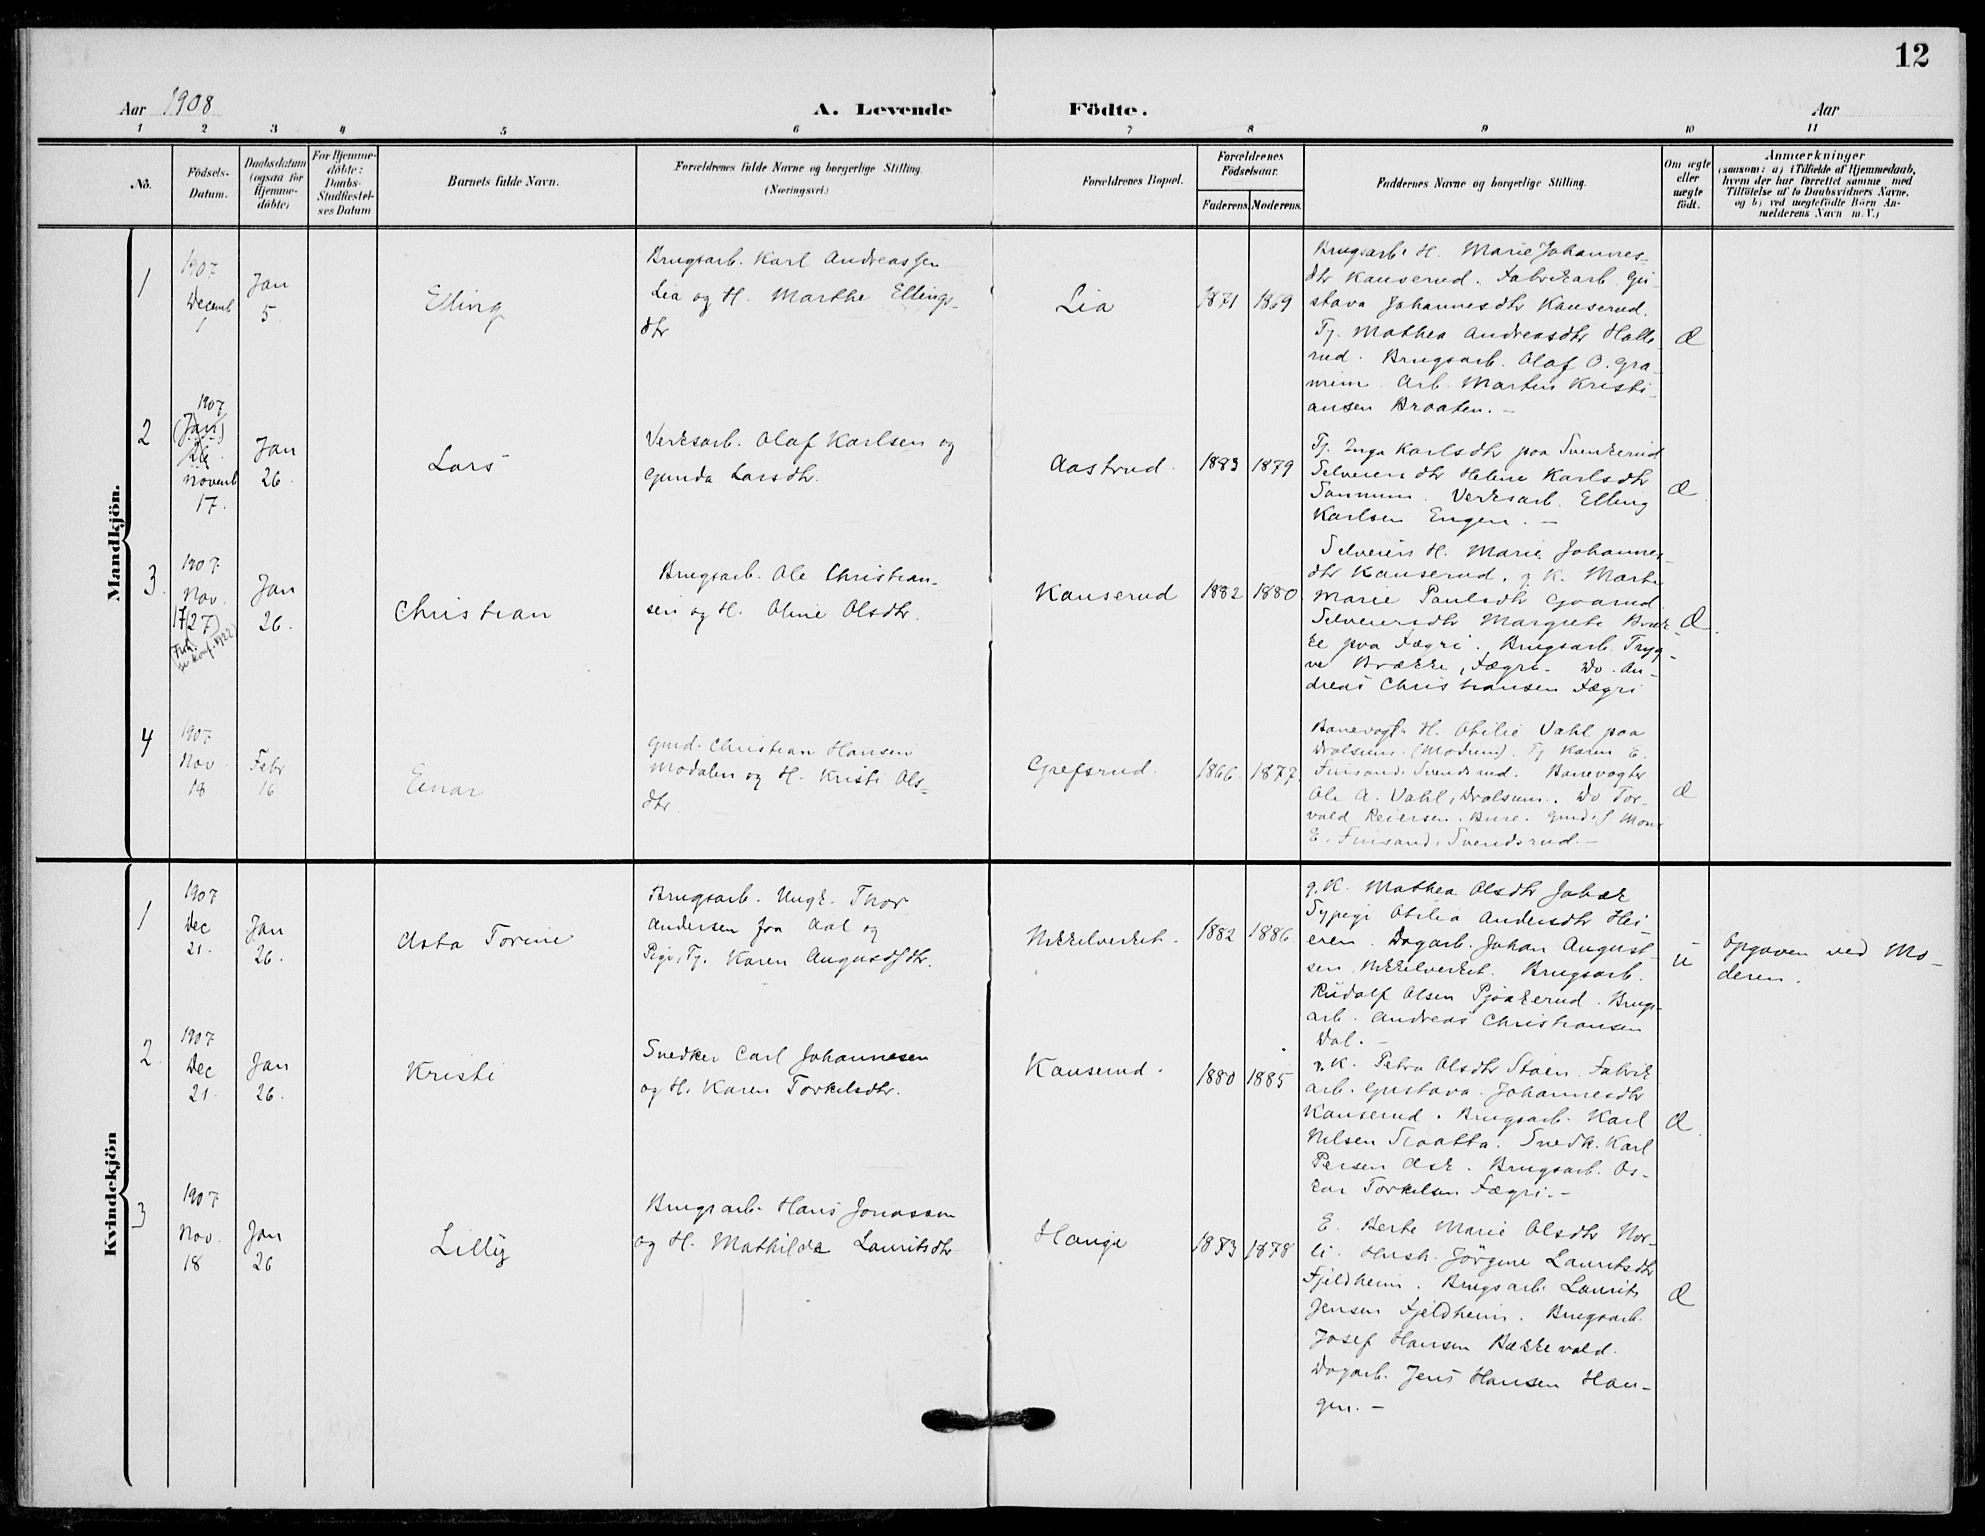 12
Aar 1908
A. Levende Födte.
Aar
1 2 3 4 5 6 7 8 9 10 11
No.
Födsels-
Datum.
Daabsdatum
(ogsaa for
Hjemme-
döbte)
For Hjemme-
döbte:
Daabs-
Stadfæstel-
ses Datum
Barnets fulde Navn.
Forældrenes fulde Navne og borgerlige Stilling.
(Næringsvei.)
Forældrenes Bopæl.
Forældrenes
Födselsaar.
Faderens. Moderens.
Faddernes Navne og borgerlige Stilling.
Om ægte
eller
uægte
födt.
Anmærkninger
(saasom: a) i Tilfælde af Hjemmedaab,
hvem der har forrettet samme med
Tilföielse af to Daabsvidners Navne,
og b) ved uægtefödte Börn An-
melderens Navn m. V.)
Mandkjön.
1
1907
Decemb
1
Jan
5.
Elling
Brugsarb. Karl Andreassen
Lia og H. Marthe Ellings-
dtr
Lia
1871 1869
Brugsarb. H. Marie Johannes-
dtr Kanserud. Fabrikarb. Gu-
stava Johannesdtr Kanserud.
Tj. Mathea Andreasdtr Halle-
rud. Brugsarb. Olaf O. Gra-
Arb. Martin Kristi-
ansen Braaten. -
Æ
2
1907
(Jan)
26
novemb
17.
Jan
26.
Lars
Verksarb. Olaf Karlsen og
Gunda Larsdtr.
Aastrud.
1883 1879
Tj. Inga Karlsdtr paa Svenkerud
Selveierdtr Helene Karlsdtr
Verksarb. Elling
Karlsen Engen. -
Æ.
3
1907.
Nov.
17(27)
Jan
26.
Christian
Brugsarb. Ole Christian-
sen og H. Oline Olsdtr.
Kanserud
1882 1880
Selveiers H. Marie Johannes-
dtr Kanserud. g. K. Marthe
Marie Paulsdtr Gaarud.
Selveiersdtr Margrete Bræk-
ke paa Fægri. Brugsarb. Tryg-
ve Brække, Fægri. Do. An-
dreas Christiansen Fægri
Æ.
4
1907.
Nov.
18
Febr
16
Einar
Gmd. Christian Hansen
Modalen og H. Kristi Ols-
dtr
Grefsrud.
1866. 1877
Banevogt. H. Otilie Vahl paa
Dralsum. (Modum). Tj. Karen E.
Finsand, Svendsrud. Banevogter
Ole A. Vahl, Dralsum. Do Tor-
vald Reiersen. Bure. Gmd. S.
E. Finsand, Svendsrud. -
Æ
Kvindekjön
1
1907
Dec
21.
Jan
26.
Asta Torine
Brugsarb. Ungk. Thor
Andersen fra Aal og
Pige, Tj. Karen Augustsdtr.
Nikkelverket.
1882 1886
g. K. Mathea Olsdtr
Sypige Otilia Andersdtr Hei-
eren. Dagarb. Johan August-
sen Nikkelverket. Brugsarb.
Rudolf Olsen Pjaakerud. Brugs-
arb. Andreas Christiansen
Dal. -
U
Opgaven ved Mo-
deren.
2
1907
Dec
21.
Jan
26.
Kristi
Snedker Carl Johannesen
og H. Karen Torkelsdtr.
Kanserud.
1880 1885
g. K. Petra Olsdtr Støen. Fabrik
arb. Gustava Johannesdtr
Kanserud. Brugsarb. Karl
Nilsen Slaatta. Snedk. Karl
Persen Ask. Brugsarb. Os-
kar Torkelsen Fægri. -
Æ.
3
1907.
Nov.
18
Jan
26
Lilly
Brugsarb. Hans Jonassen
og H. Mathilde Lauritsdtr
Hauge
1883 1878
E. Berte Marie Olsdtr Nor-
li. Hush. Jörgine Lauritsdtr
Fjeldheim. Brugsarb. Laurits
Jensen Fjeldheim. Brugsarb.
Josef Hansen Bækkevold.
Dagarb. Jens Hansen Hau-
gen. -
Æ